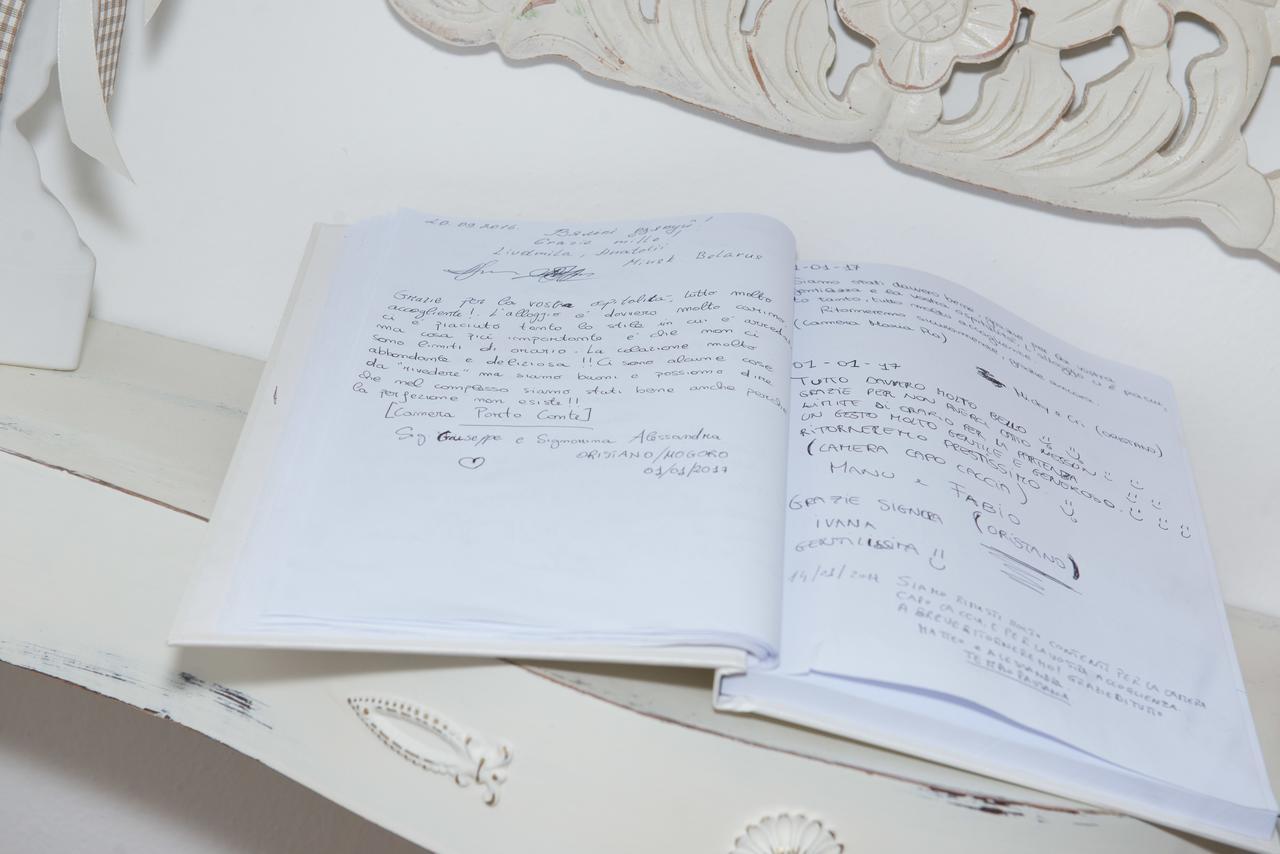 20.09.2016.
Вялікі дзякуй!
Grazie mille,
Liudmila, Anatolii
Minsk Belarus
Grazie per la vostra ospitalità, tutto molto
accogliente!. L'alloggio è davvero molto carino
ci è piaciuto tanto lo stile in cui è arredato
ma cosa più importante è che non ci
sono limiti di orario. La colazione molto
abbondante e deliziosa!! Ci sono alcune cose
da "rivedere" ma siamo buoni e possiamo dire
che nel complesso siamo stati bene anche perchè
la perfezione non esiste!!
[Camera Porto Conte]
Sig Giuseppe e Signorina Alessandra
ORISTANO/MOGORO
01/01/2017
1-01-17
Siamo stati davvero bene, grazie per la vostra
gentilezza e la vostra ospitalità. L'alloggio ci è piaciuto
tanto, tutto molto accogliente
Ritorneremo sicuramente, grazie ancora.
(Camera Maria Pia)
Nicky e Cri (ORISTANO)
01-01-17
TUTTO DAVVERO MOLTO BELLO
GRAZIE PER NON AVERCI DATO NESSUN
LIMITE DI ORARIO PER LA PARTENZA
UN GESTO MOLTO GENTILE E GENEROSO.
RITORNEREMO PRESTISSIMO
(CAMERA CAPO CACCIA)
MANU e FABIO
(ORISTANO)
GRAZIE SIGNORA
IVANA
GENTILISSIMA!!
SIAMO RIMASTI MOLTO CONTENTI PER LA CAMERA
CAPO CACCIA E PER LA VOSTRA ACCOGLIENZA.
A BREVE RITORNEREMO! GRAZIE DI TUTTO
MATTEO
e ALESSANDRA
TEMPIO PAUSANIA